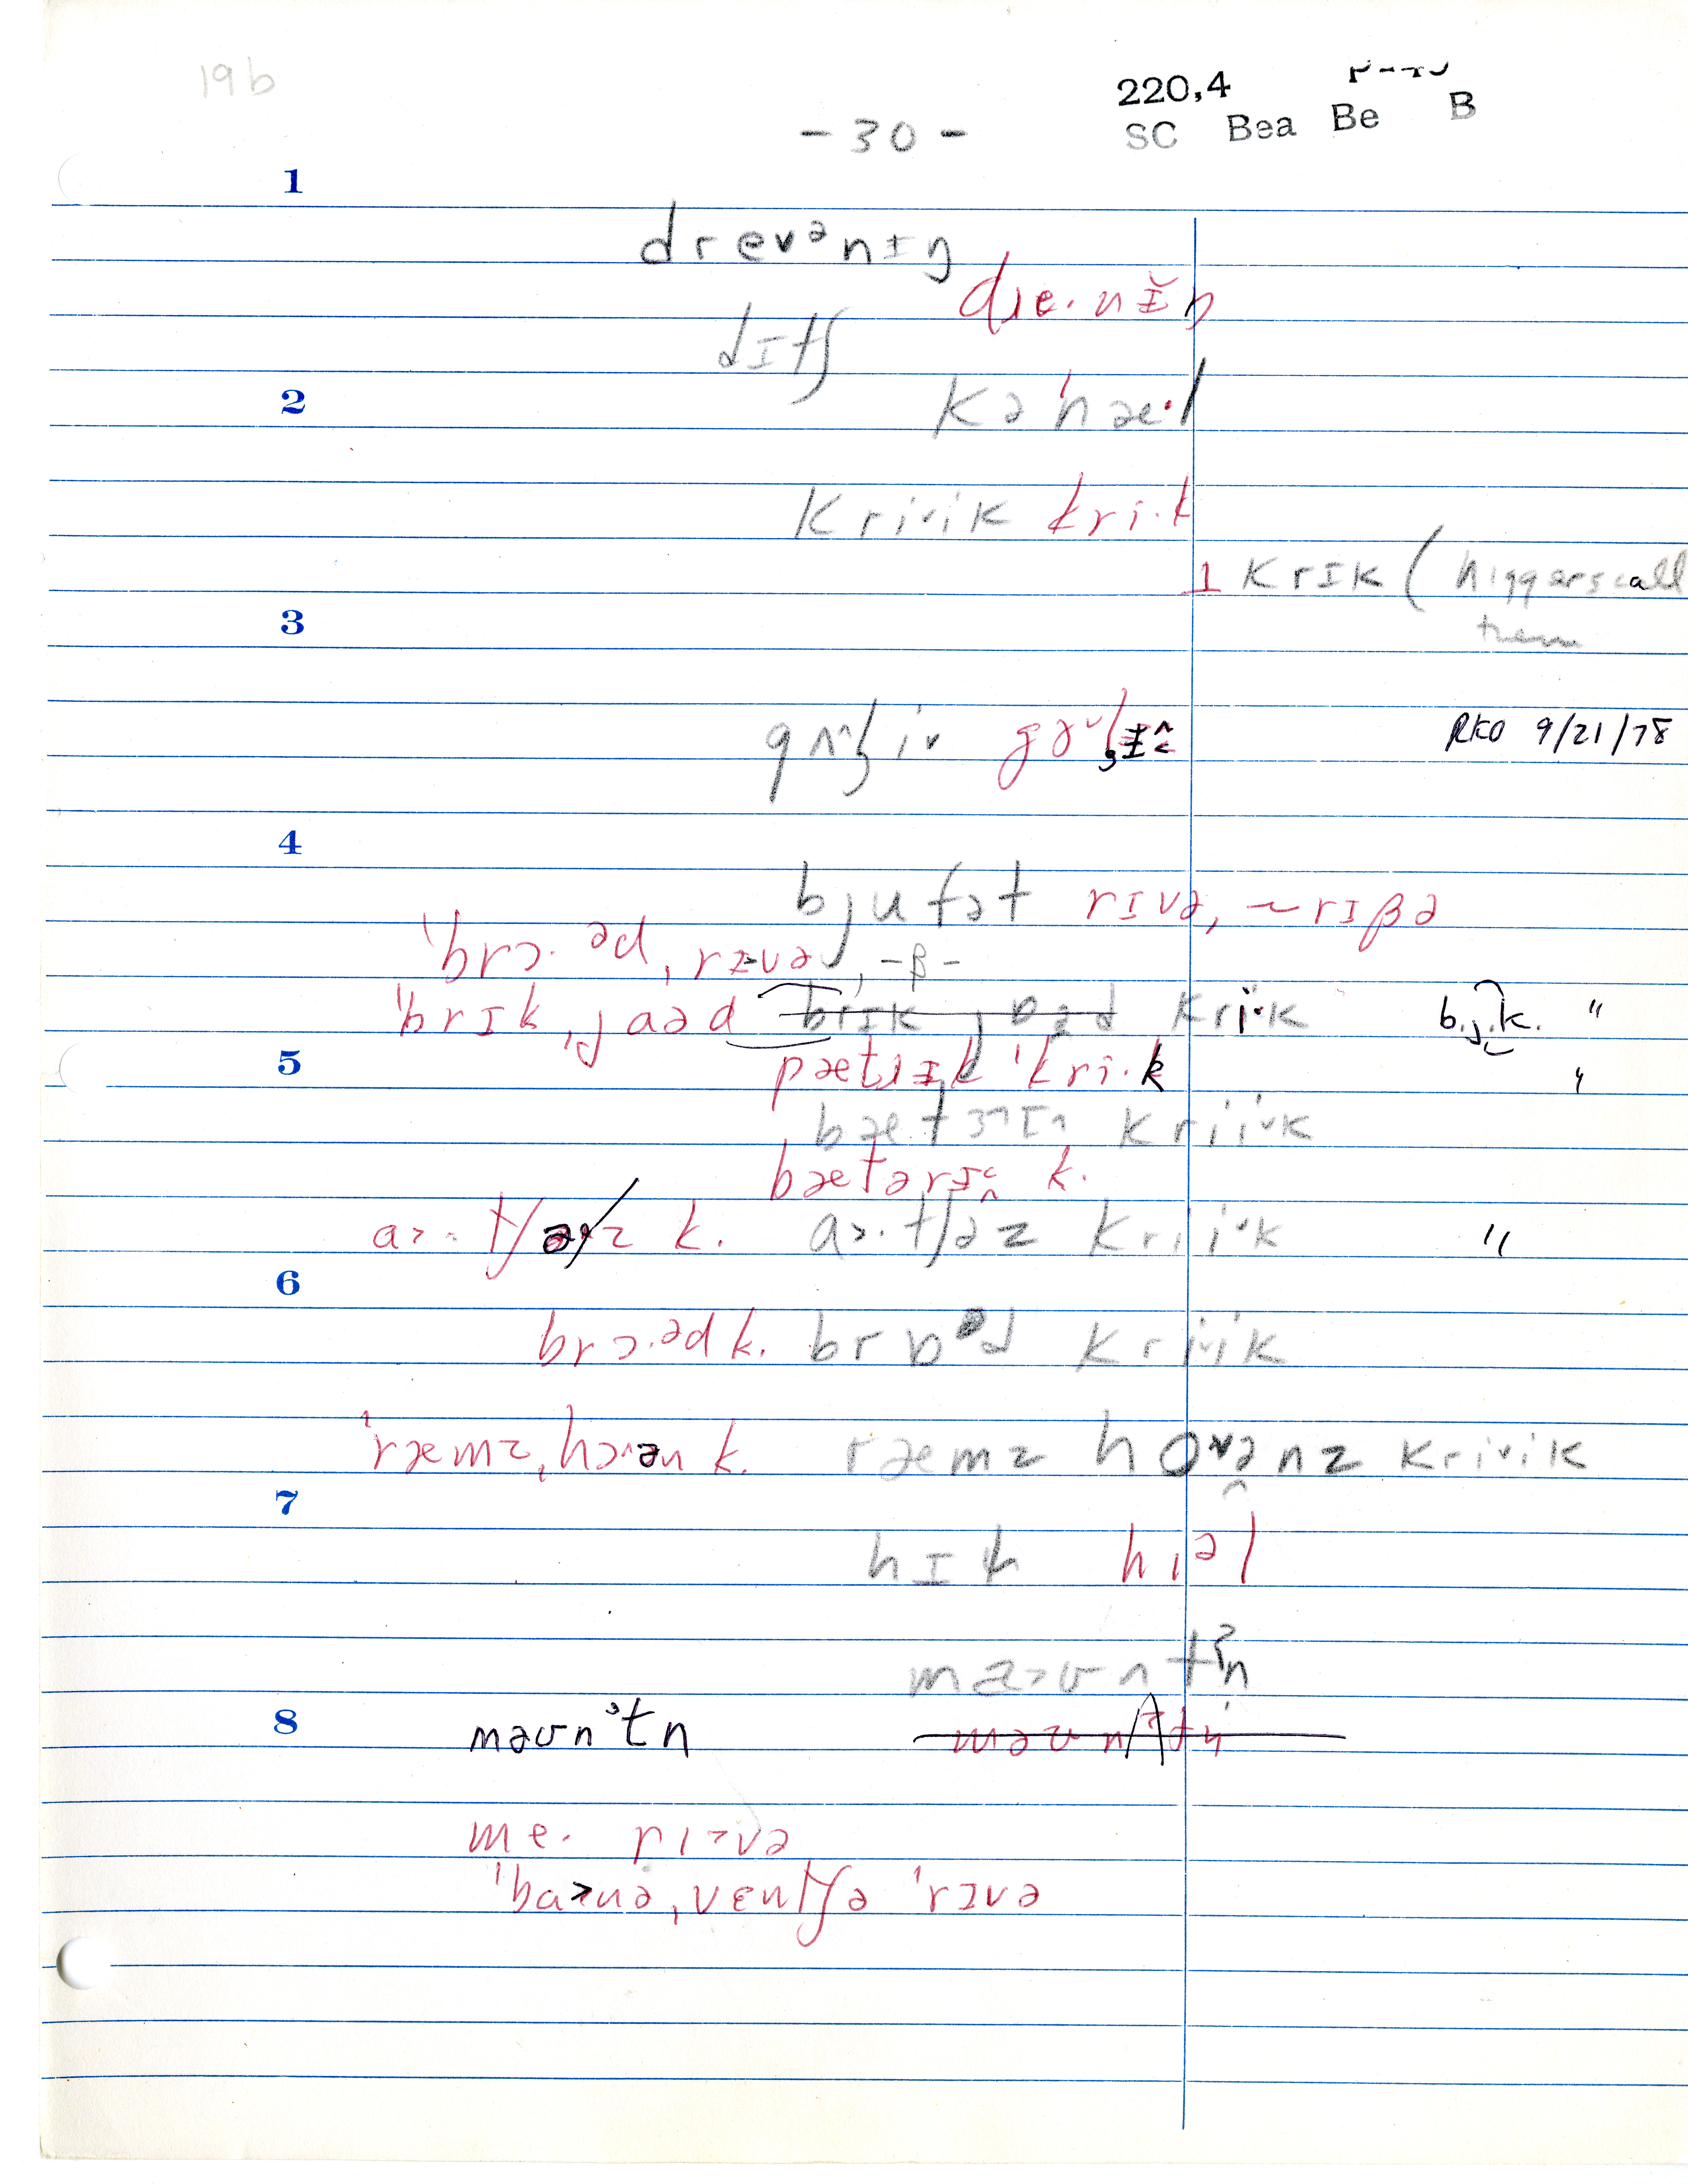 19b
220,4
SC Bea Be B
- 30 -
1
drevᵊnɪŋ
dɹe·nɪ̆ŋ
dɪtʃ
2
kəˈhæ·l
krivik kri·k
1 krɪk (niggers call
them
3
gʌ^ʒiv
RKO 9/21/78
4
bjufət rɪvə, ~ rɪβə
ˈbrɔ·ᵊd, rɪvə, -β-
ˈbrɪkˌjaəd kri·k b.j.k. "
5
pætɹɪk ˈkri·k "
bæt krivk
bætərɪ k.
a>·tʃəz k. a>·tʃəz krivk "
6
brɔ·ᵊd k. brɒᵊd krivik
ˈræmz, hɔ^ən k. ræmz hovənz krivik
7
hɪɫ hɪᵊl
mn
8
məʊnˀtn
me· rɪ>və
ˈba>nə, vɛntʃə ˈrɪvə